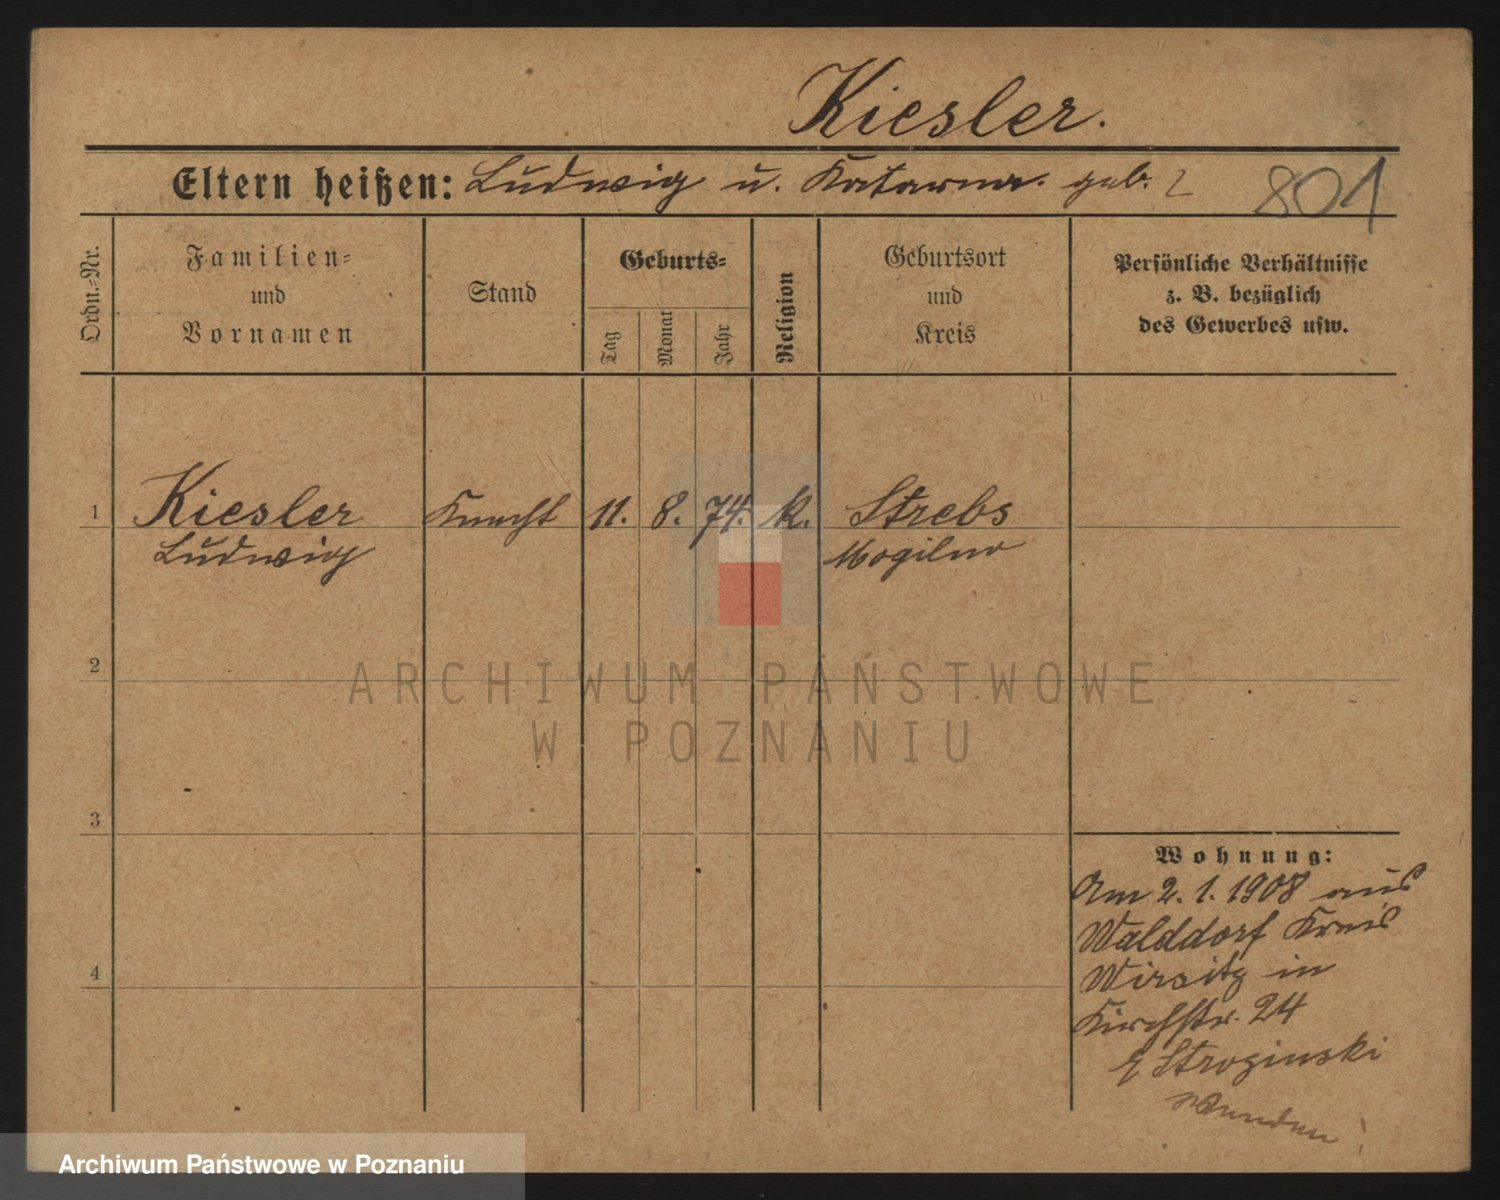 Kiesler.
Eltern heißen: Ludwig u. Katarina. geb. ?
801
Ordn.=Nr.
Familien=
und
Vornamen
Stand
Geburts=
Tag
Monat
Jahr
Religion
Geburtsort
und
Kreis
Persönliche Verhältnisse
z. B. bezüglich
des Gewerbes usw.
1
Kiesler Knecht 11. 8. 74. k. Strebs
Ludwig Mogilno
2
3
4
Wohnung:
Am 2. 1. 1908 aus
Walddorf Kreis
Wirsitz in
Kirchstr. 24
Stroginski
ARCHIWUM PAŃSTWOWE
W POZNANIU
Archiwum Państwowe w Poznaniu